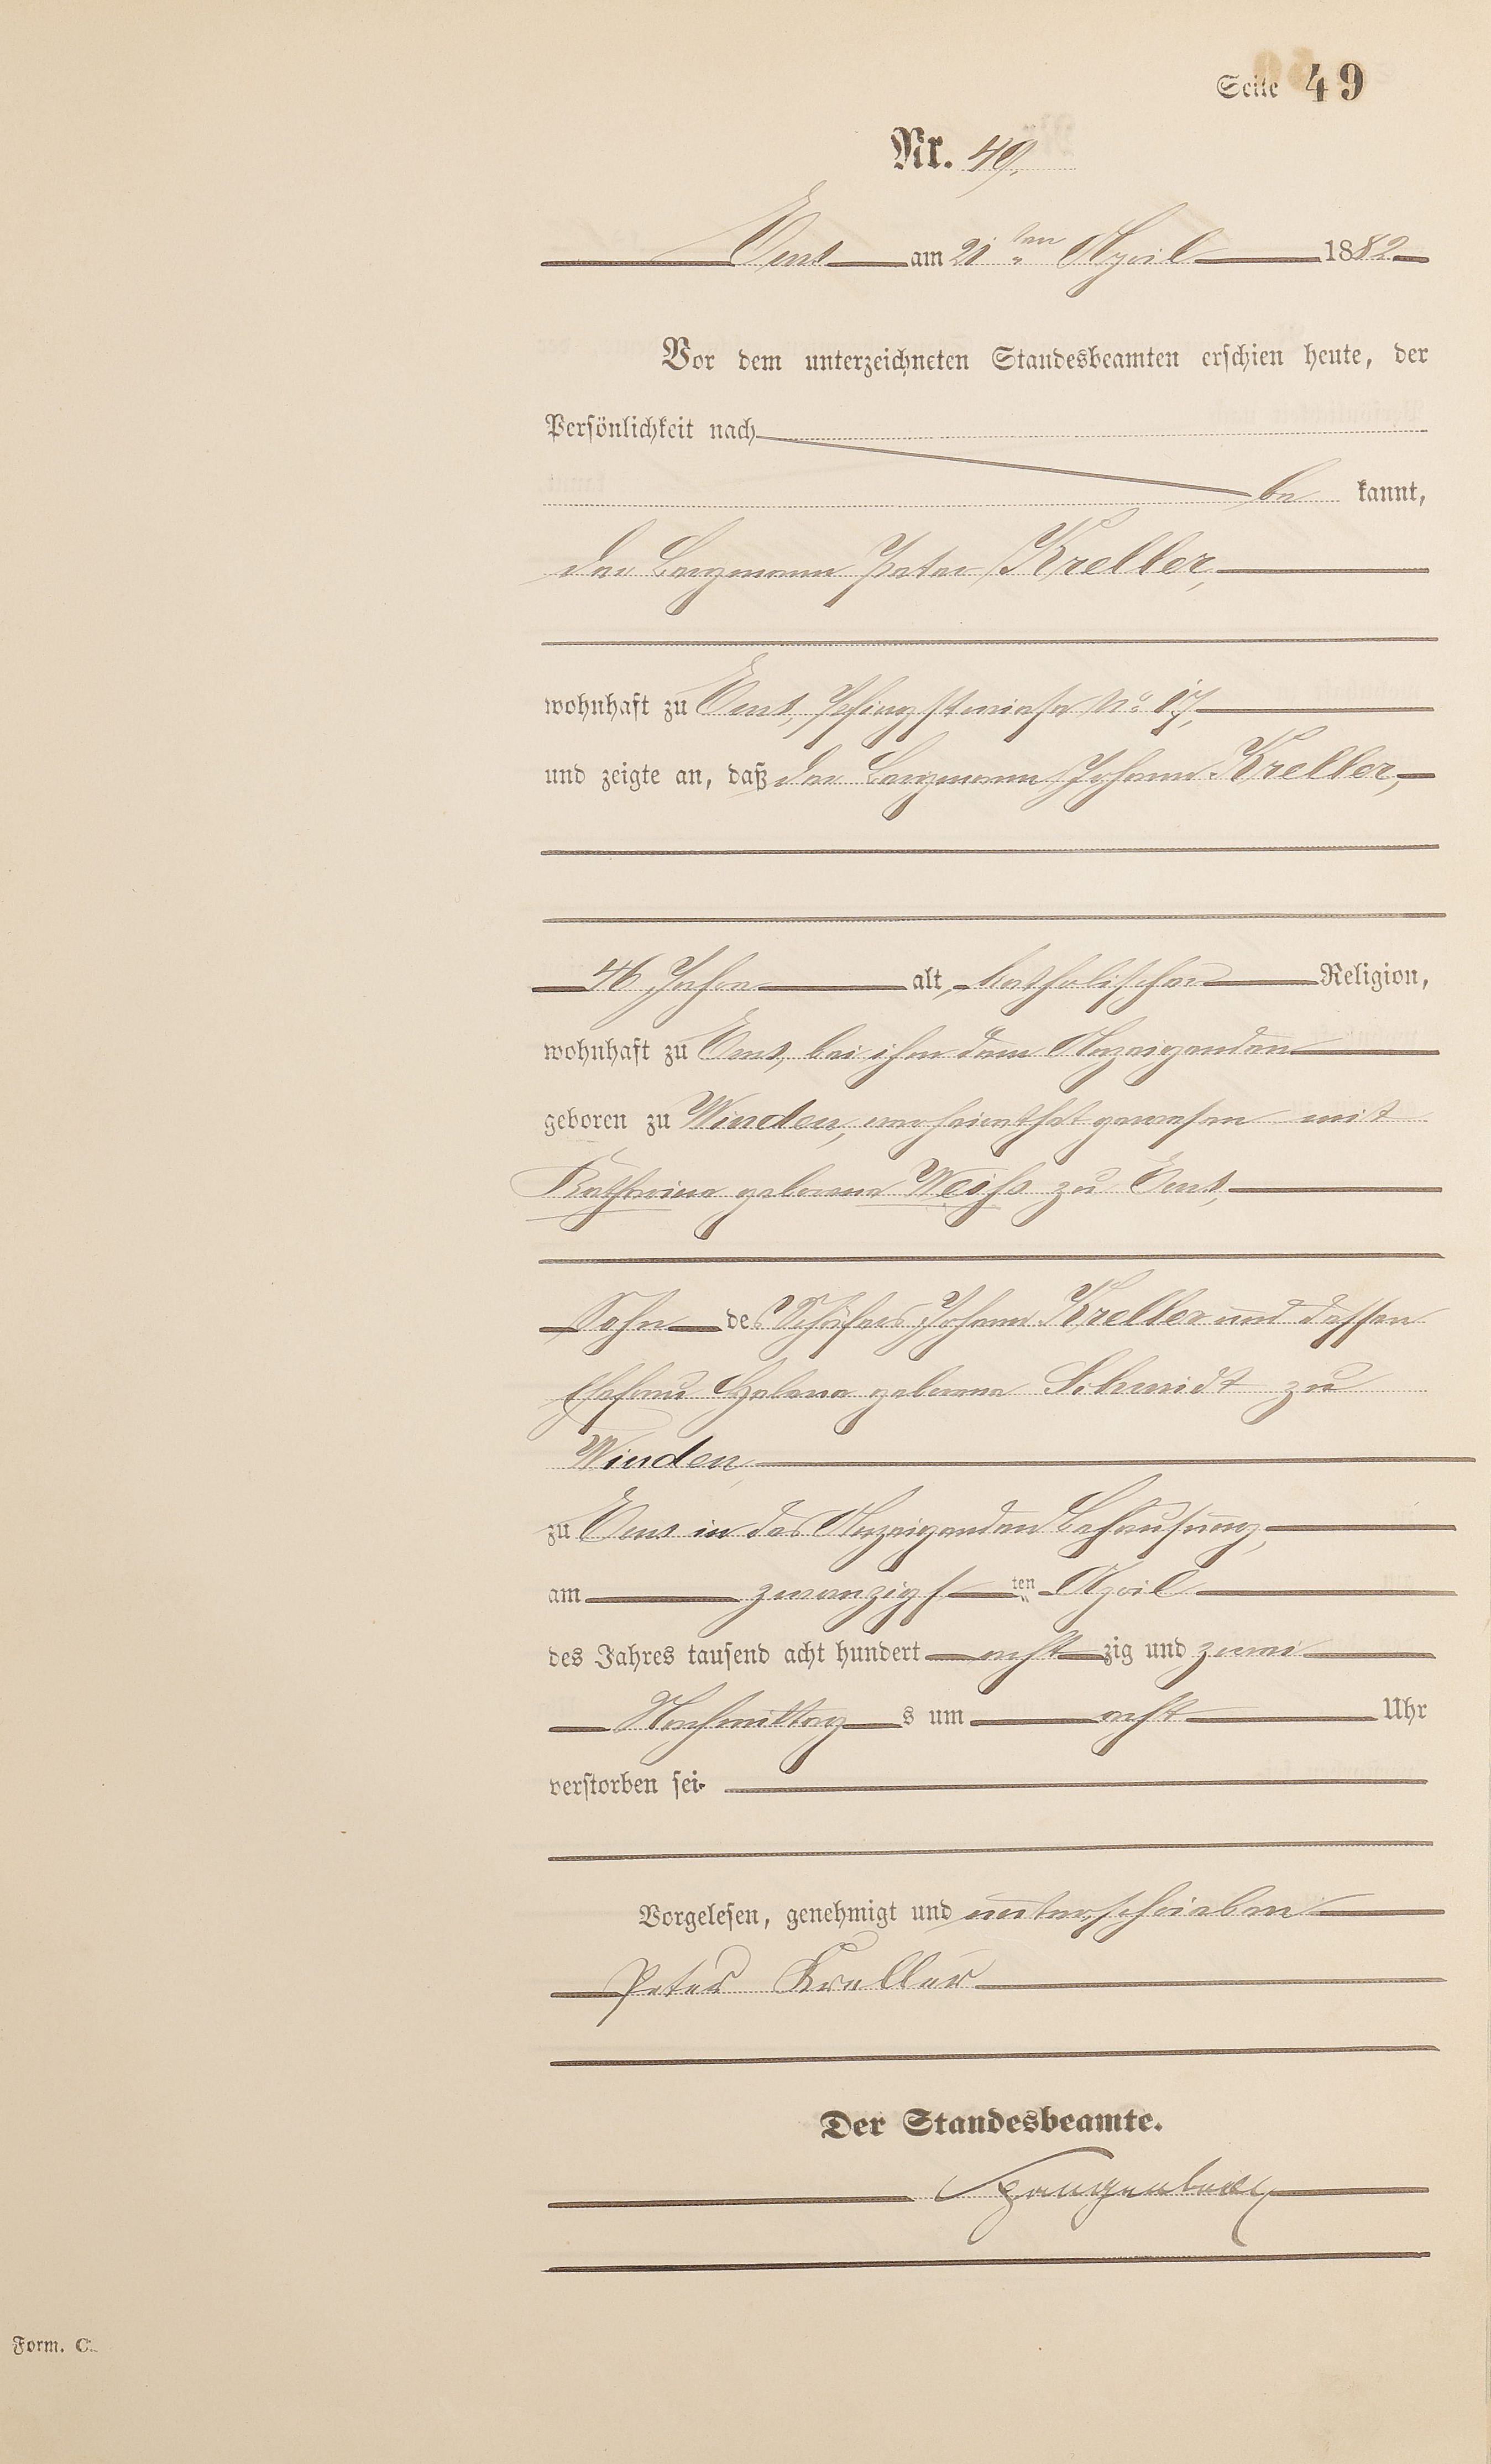 Seite 49
Nr. 49.
Ems am 21ten April 1882
Vor dem unterzeichneten Standesbeamten erschien heute, der
Persönlichkeit nach
be kannt,
der Bergmann Peter Kreller,
wohnhaft zu Ems, Pfingstwiese No 17,
und zeigte an, daß der Bergmann Johann Kreller,
46 Jahre alt, katholischer Religion,
wohnhaft zu Ems, bei ihm dem Anzeigenden
geboren zu Winden, verheirathet gewesen mit
Katharina geborene Weiß zu Ems,
Sohn des Schäfers Johann Kreller und dessen
Ehefrau Helena geborene Schmidt zu
Winden,
zu Ems in des Anzeigenden Behausung,
am zwanzigsten April
des Jahres tausend acht hundert achtzig und zwei
Nachmittags um acht Uhr
verstorben sei.
Vorgelesen, genehmigt und unterschrieben
Peter Kreller
Der Standesbeamte.
Form. C.